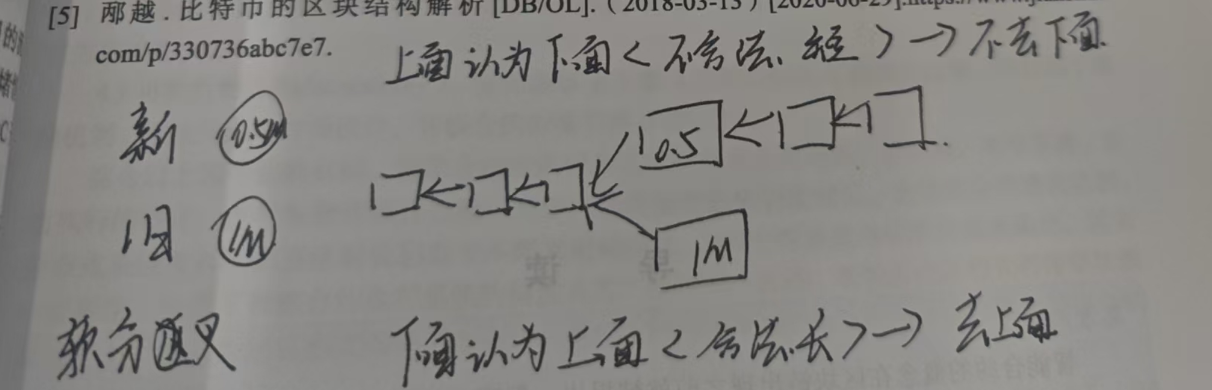 [5] 邴越.比特币的区块结构解析[DB/OL].(2018-03-13)[2020-06-29].https://www.
com/p/330736abc7e7.
上面认为下面<不合法、短>→不去下面.
新 0.5M
0.5
旧 1M
1M
软分叉
下面认为上面<合法.长>→去上面
导 读